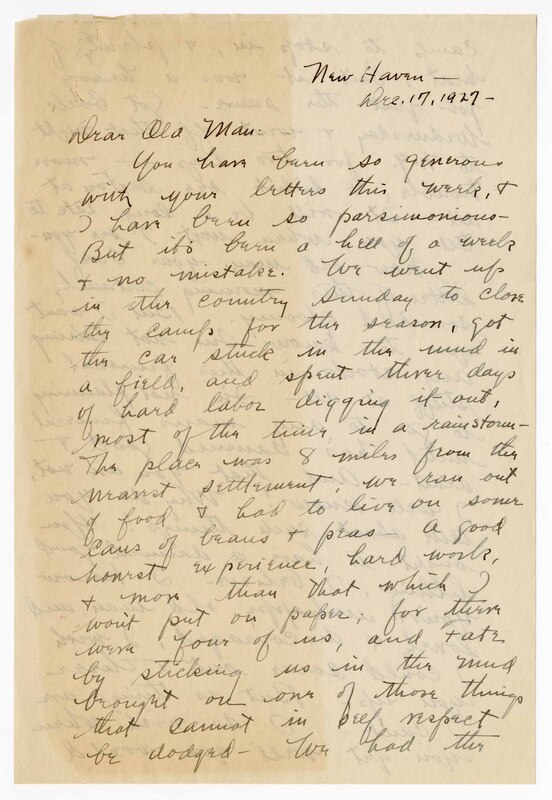 New Haven —
Dec. 17, 1927 —
Dear Old Man: —
You have been so generous
with your letters this week, +
I have been so parsimonious —
But it's been a hell of a week
+ no mistake. We went up
in the country Sunday to close
the camp for the season, got
the car stuck in the mud in
a field, and spent three days
of hard labor digging it out,
most of the time in a rainstorm —
The place was 8 miles from the
nearest settlement, we ran out
of food + had to live on some
cans of beans + peas — a good
honest experience, hard work,
+ more than that, which I
won't put on paper; for there
were four of us, and Fate
by sticking us in the mud
brought on one of those things
that cannot in self respect
be dodged — We had the